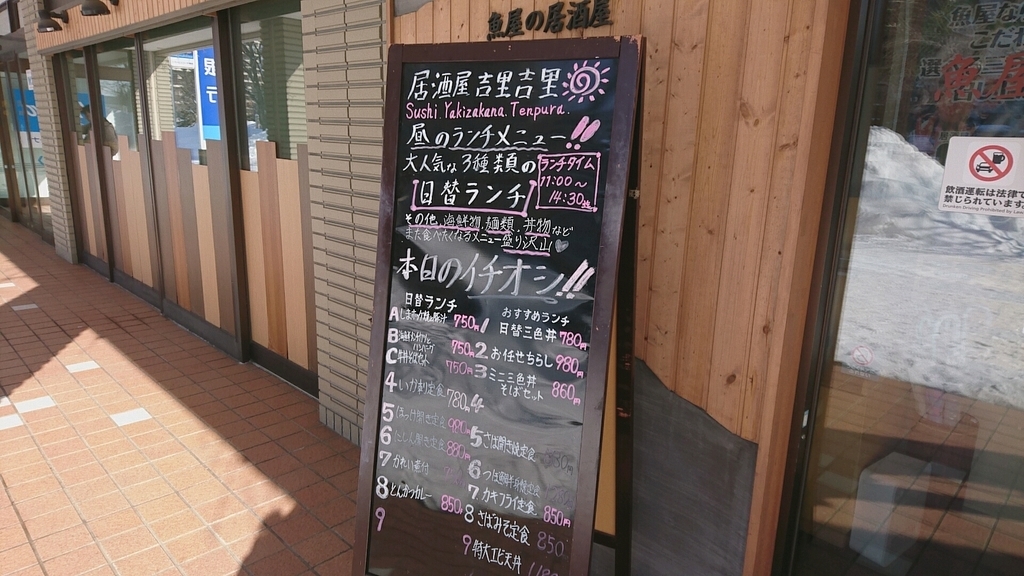 魚屋の居酒屋
居酒屋吉里吉里
Sushi Yakizakana Tenpura.
昼のランチメニュー!!
大人気な3種類の
日替ランチ
ランチタイム
11:00~
14:30
その他、海鮮物、麺類、丼物など
また食べたくなるメニュー盛り沢山♡
本日のイチオシ!!
日替ランチ
A 750円
B 750円
C 750円
4 いかが定食 780
5 ほっけ開き定食
6 にしん開き定食 880円
7 かれい煮付
8 とんかつカレー 850円
9
おすすめランチ
1 日替三色丼 780円
2 お任せちらし 980円
3 ミニ三色丼
そばセット 860円
4
5 さば開き焼定食
6
7 カキフライ定食 850円
8 さばみそ定食 850
9 特大エビ天丼
魚屋
飲酒運転は法律で
禁じられています